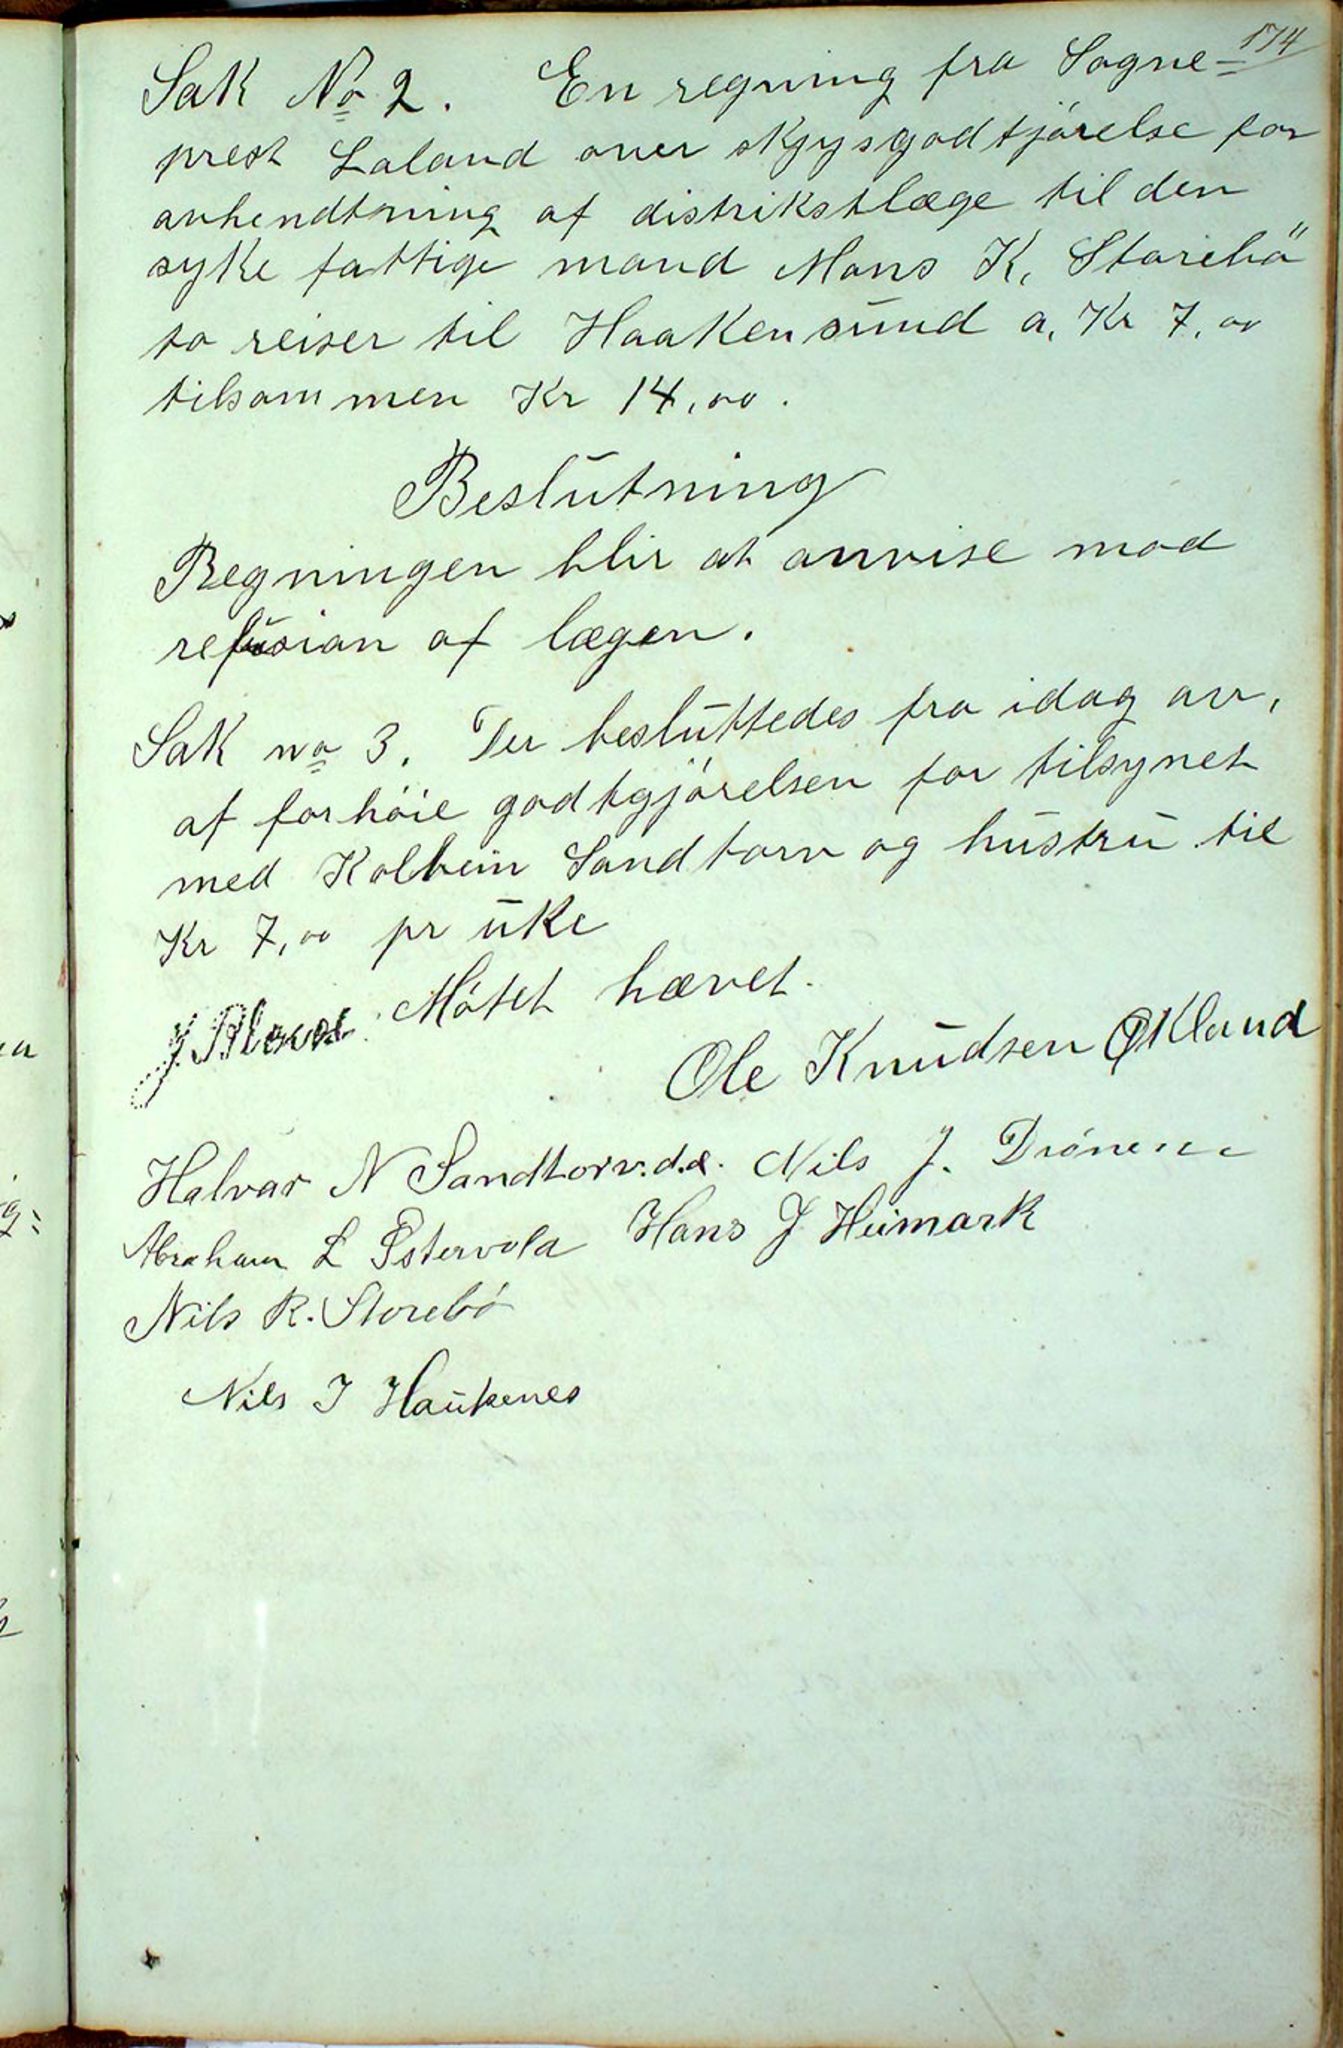 174
Sak No 2. En regning fra Sogne-
prest Laland over skysgodtjörelse for
avhendtning af distrikstlæge til den
syke fattige mand Mons K. Storebö
to reiser til Haakensund a. Kr 7,00
tilsammen Kr 14,00.
Beslutning
Regningen blir at anvise mod
refusion af lægen.
Sak no 3. Der besluttedes fra idag av,
af forhöie godtgjörelsen for tilsynet
med Kolbein Sandtorv og hustru til
Kr 7,00 pr uke
Mötet hævet.
Ole Knudsen Økland
Halvar N Sandtorv.d.e. Nils J. Drönen
Abraham L Østervold Hans J Heimark
Nils R. Storebö
Nils J Haukenes